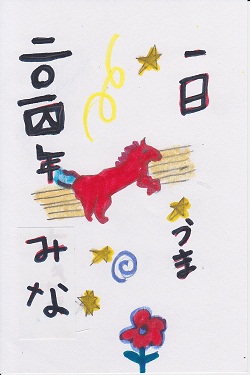 一日
うま
二〇一四年
みな